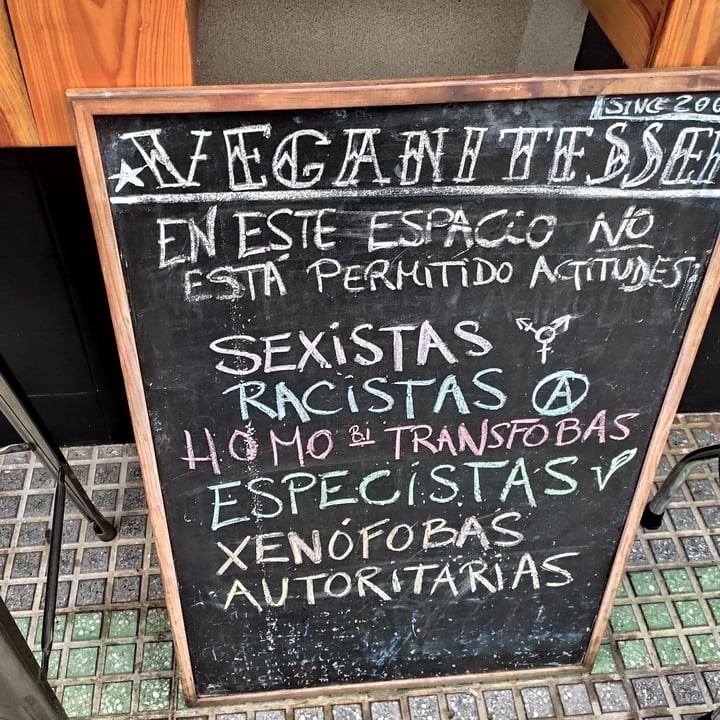 SINCE 200
VEGANITESSEN
EN ESTE ESPACIO NO
ESTÁ PERMITIDO ACTITUDES:
SEXISTAS
RACISTAS Ⓐ
HOMO BI TRANSFOBAS
ESPECISTAS V
XENÓFOBAS
AUTORITARIAS